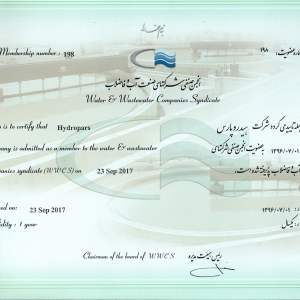 Membership number : 198
شماره عضویت: ۱۹۸
انجمن صنفی شرکتهای صنعت آب و فاضلاب
Water & Wastewater Companies Syndicate
is to certify that Hydropars
گردد شرکت هیدروپارس
company is admitted as a member to the water & wastewater
به عضویت انجمن صنفی شرکتهای
companies syndicate (W W C S) on 23 Sep 2017
۱۳۹۶/۰۷/۰۱
آب و فاضلاب پذیرفته شده است.
on: 23 Sep 2017
۱۳۹۶/۰۷/۰۱
validity : 1 year
یکسال
Chairman of the board of W W C S
رئیس هیئت مدیره